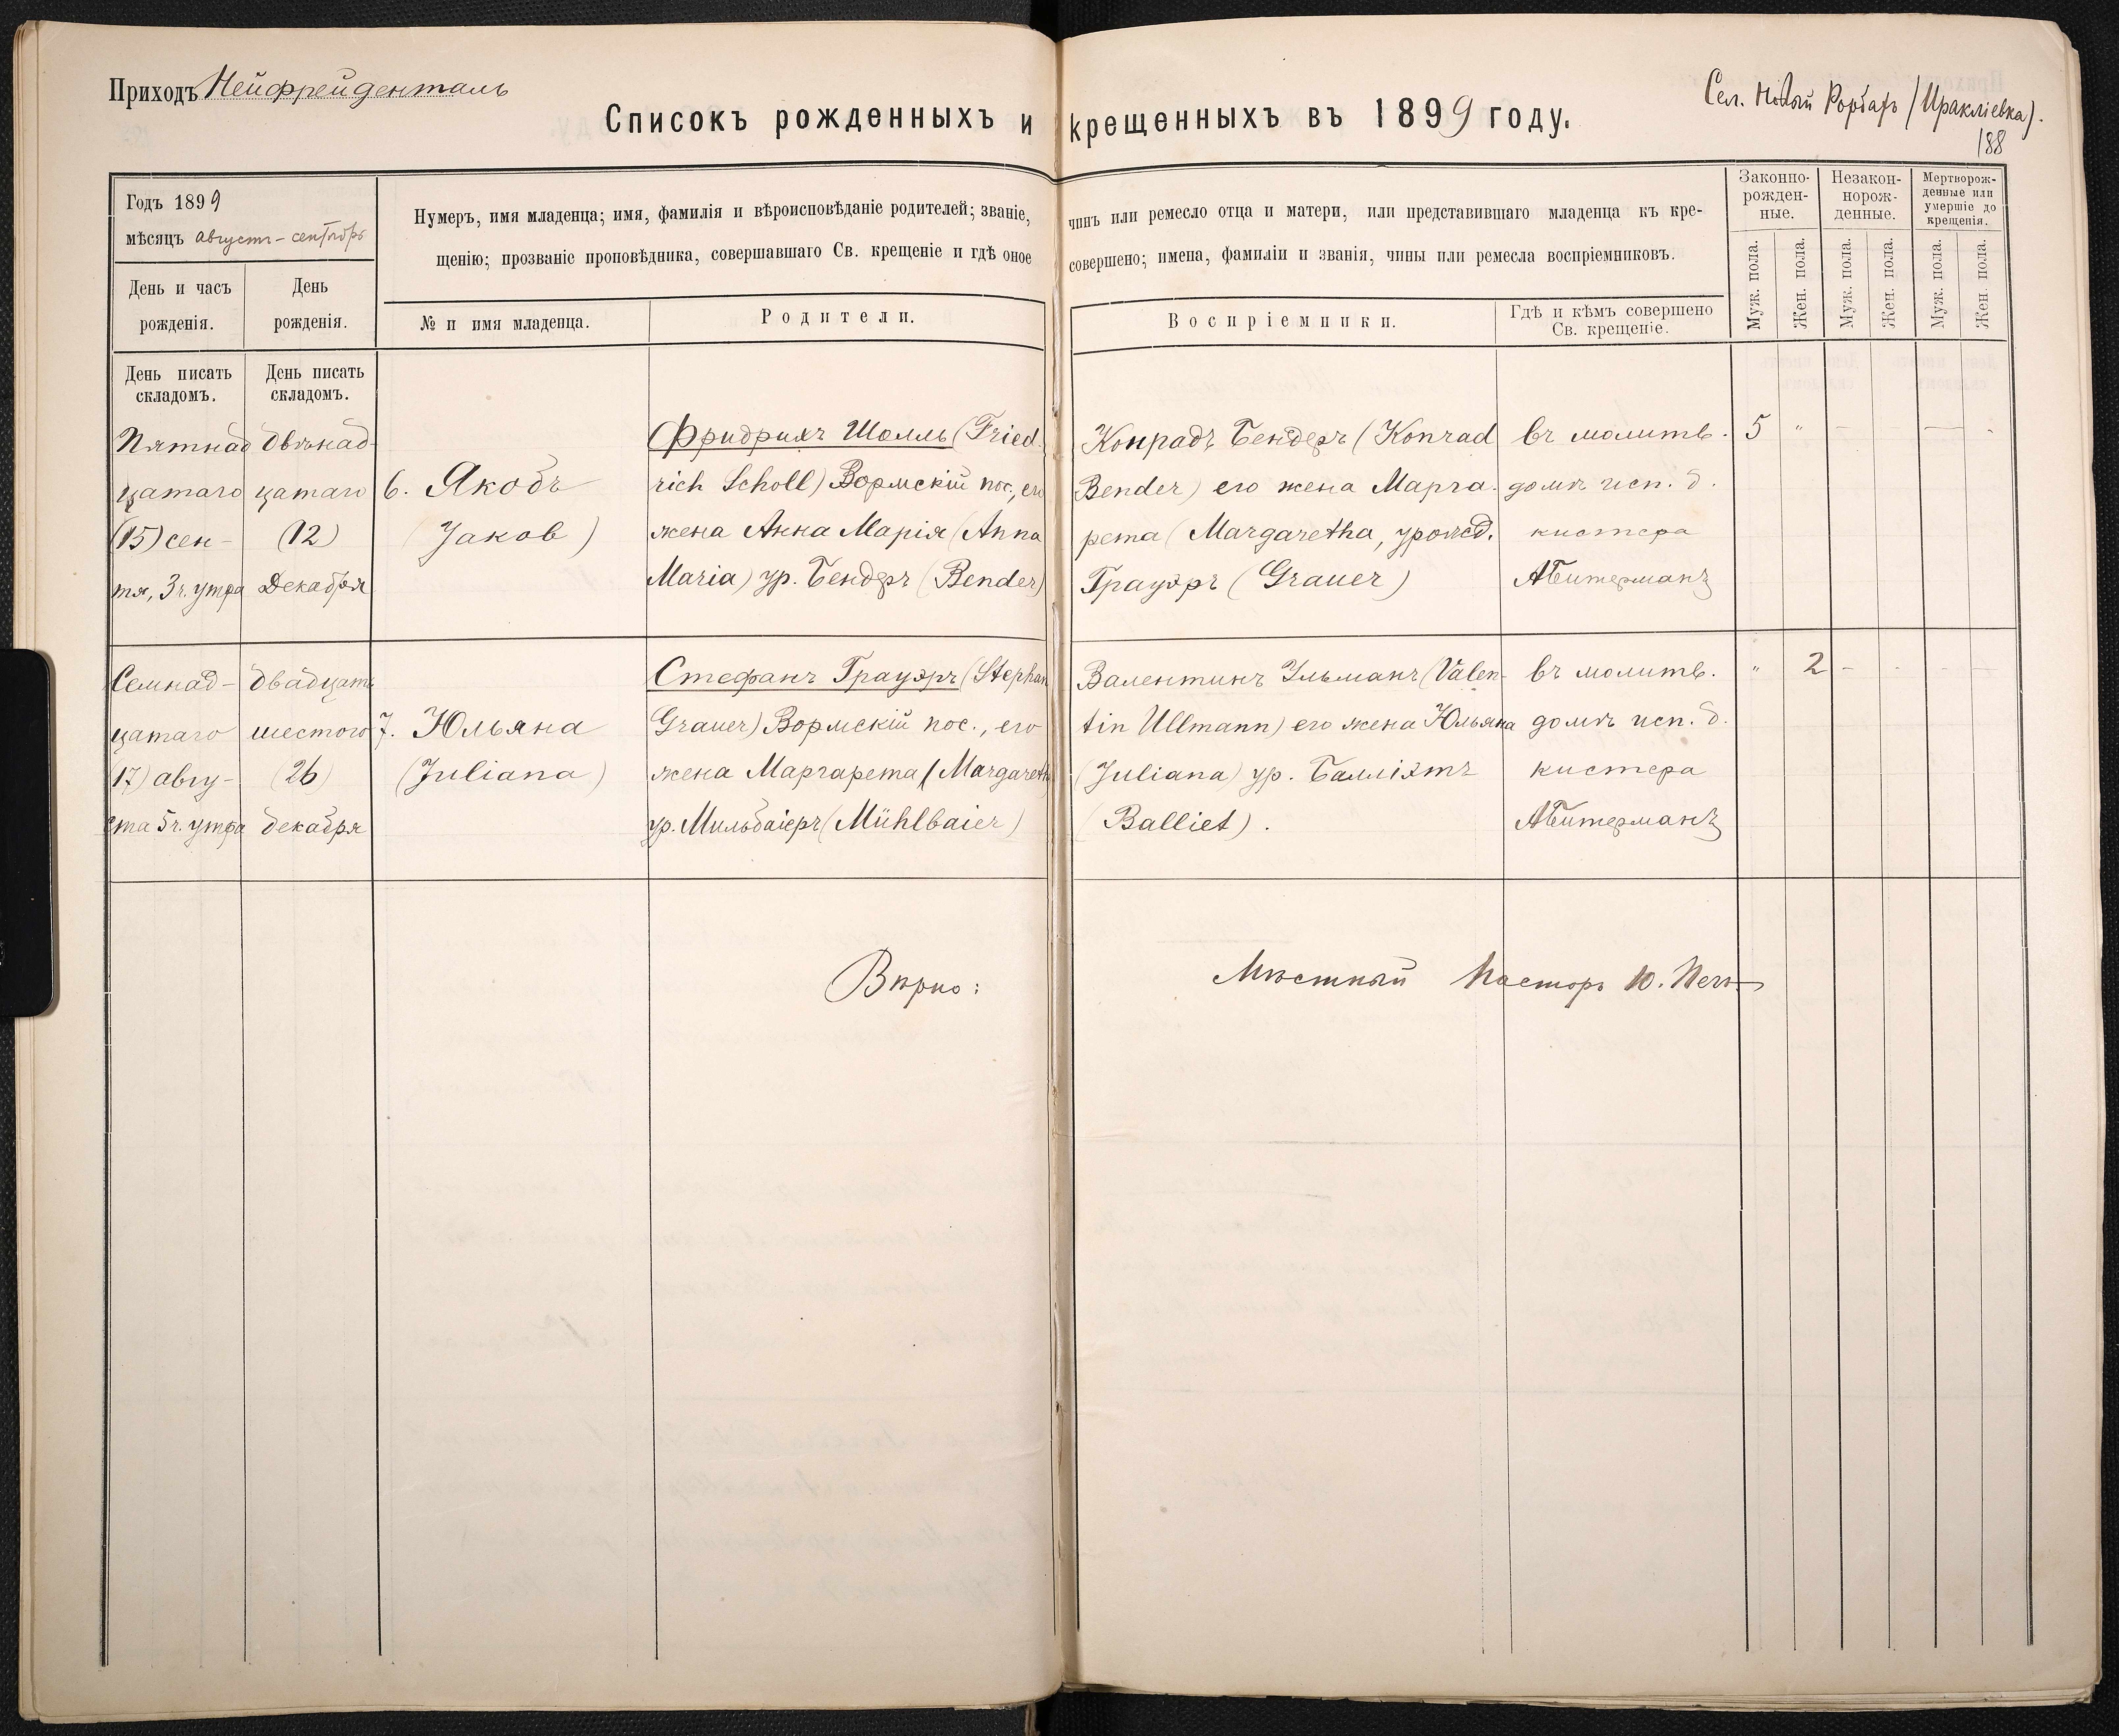 Приходъ Нейфрейденталь
Сел. Новый Рорбахъ (Ираклiевка).
188
Списокъ рожденныхъ и крещенныхъ въ 1899 году.
Годъ 1899
мѣсяцъ августъ - сентябрь
День и часъ рожденія.
День рожденія.
Нумеръ, имя младенца; имя, фамилія и вѣроисповѣданіе родителей; званіе, чинъ или ремесло отца и матери, или представившаго младенца къ кре-
щенію; прозваніе проповѣдника, совершавшаго Св. крещеніе и гдѣ оное совершено; имена, фамиліи и званія, чины или ремесла воспріемниковъ.
№ и имя младенца.
Родители.
Воспріемники.
Гдѣ и кѣмъ совершено
Св. крещеніе.
Законно-
рожден-
ные.
Незакон-
норож-
денные.
Мертворож-
денные или
умершіе до
крещенія.
Муж. пола.
Жен. пола.
Муж. пола.
Жен. пола.
Муж. пола.
Жен. пола.
День писать
складомъ.
День писать
складомъ.
Пятнад
цатаго
(15) сен-
тя, 3 ч. утра
двѣнад-
цатаго
(12)
Декабря
6. Якобъ
(Jакоb)
Фридрихъ Шолль (Fried-
rich Scholl) Вормскій пос., его
жена Анна Марія (Anna
Maria) ур. Бендеръ (Bender)
Конрадъ Бендеръ (Konrad
Bender) его жена Марга-
рета (Margaretha, урожд.
Грауэръ (Grauer)
въ молитв.
домѣ исп. д.
кистера
А Битерманъ
5 " - - - -
Семнад-
цатаго
(17) авгу-
ста 5 ч. утра
двадцать
шестого
(26)
декабря
7. Юльяна
(Juliana)
Стефанъ Грауэръ (Stephan
Grauer) Вормскій пос., его
жена Маргарета (Margareth
ур. Мильбаіеръ (Mühlbaier)
Валентинъ Ульманъ (Valen-
tin Ullmann) его жена Юльяна
(Juliana) ур. Балліэтъ
(Balliet).
въ молитв.
домѣ исп. д.
кистера
А Битерманъ
" 2 - - - -
Вѣрно:
Мѣстный Пасторъ Ю.